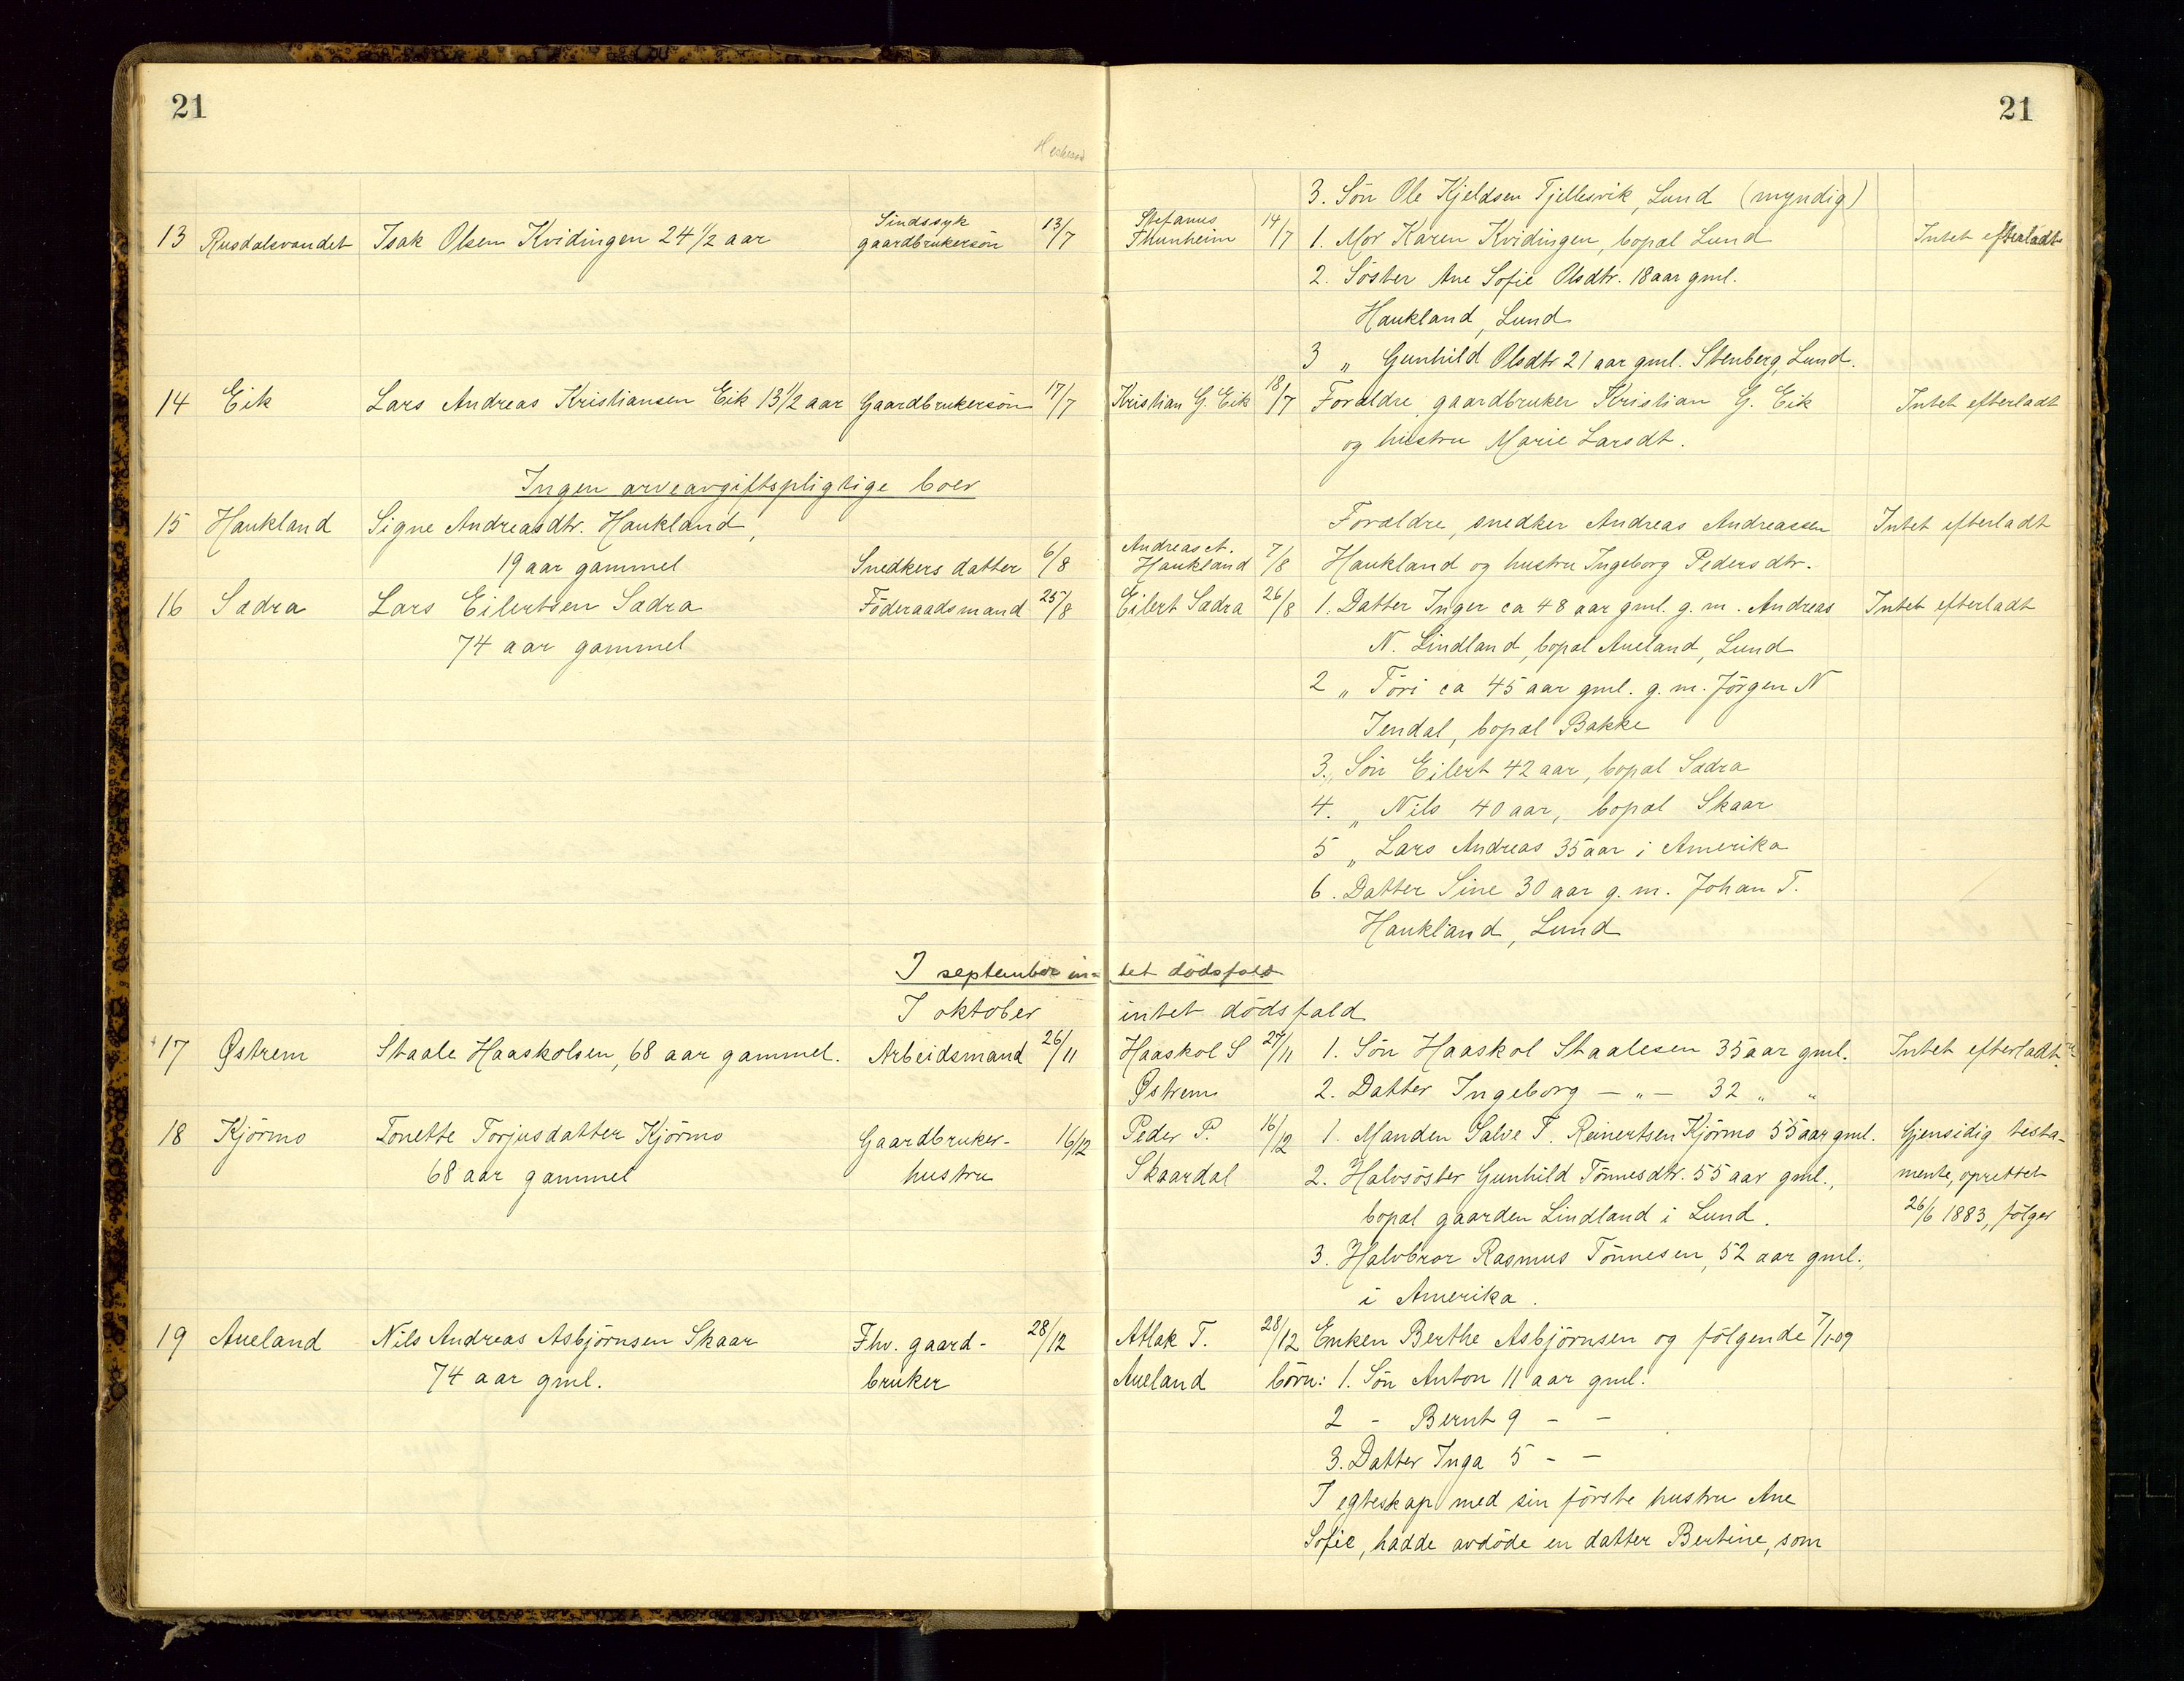 21
21
3. Sön Ole Kjeldsen Tjellesvik, Lund (myndig)
13 Rusdalsvandet Isak Olsen Kvidingen 24 1/2 aar Sindssyk gaardbrukersön 13/7 Stefanus Thunheim 14/7 1. Mor Karen Kvidingen, bopæl Lund Intet efterladt
2. Söster Ane Sofie Olsdtr. 18 aar gml.
Haukland, Lund
3 „ Gunhild Olsdtr 21 aar gml. Stenberg, Lund.
14 Eik Lars Andreas Kristiansen Eik 13 1/2 aar Gaardbrukersön 17/7 Kristian G. Eik 18/7 Forældre, gaardbruker Kristian G. Eik Intet efterladt
og hustru Marie Larsdt.
Ingen arveavgiftspligtige boer
15 Haukland Signe Andreasdtr. Haukland, Forældre, snedker Andreas Andreassen Intet efterladt
19 aar gammel Snedkers datter 6/8 Andreas A. Haukland 7/8 Haukland og hustru Ingeborg Pedersdtr.
16 Sædra Lars Eilertsen Sædra Föderaadsmand 25/8 Eilert Sædra 26/8 1. Datter Inger ca 48 aar gml. g. m. Andreas Intet efterladt
74 aar gammel N. Lindland, bopæl Aueland, Lund
2 „ Töri ca 45 aar gml. g. m. Jörgen N
Jendal, bopæl Bakke
3. Sön Eilert 42 aar, bopæl Sædra
4. „ Nils 40 aar, bopæl Skaar
5 „ Lars Andreas 35 aar i Amerika
6. Datter Sine 30 aar g. m. Johan T.
Haukland, Lund
I september in- tet dödsfald
I oktober intet dödsfald
17 Østrem Staale Haaskolsen, 68 aar gammel. Arbeidsmand 26/11 Haaskol S 27/11 1. Sön Haaskol Staalesen 35 aar gml. Intet efterladt.
Østrem 2. Datter Ingeborg — „ — 32 „ „
18 Kjörmo Tonette Torjusdatter Kjörmo Gaardbruker- 16/12 Peder P. 16/12 1. Manden Salve T. Reinertsen Kjörmo 55 aar gml. Gjensidig testa-
68 aar gammel hustru Skaardal 2. Halvsöster Gunhild Tönnesdtr. 55 aar gml., mente, oprettet
bopæl gaarden Lindland i Lund. 26/6 1883, fölger
3. Halvbror Rasmus Tönnesen, 52 aar gml.,
i Amerika.
19 Aueland Nils Andreas Asbjörnsen Skaar Fhv. gaard- 28/12 Atlak T. 28/12 Enken Berthe Asbjörnsen og fölgende 7/1-09
74 aar gml. bruker Aueland börn: 1. Sön Anton 11 aar gml.
2 - Bernt 9 - -
3. Datter Inga 5 - -
I egteskap med sin förste hustru Ane
Sofie, hadde avdöde en datter Bertine, som